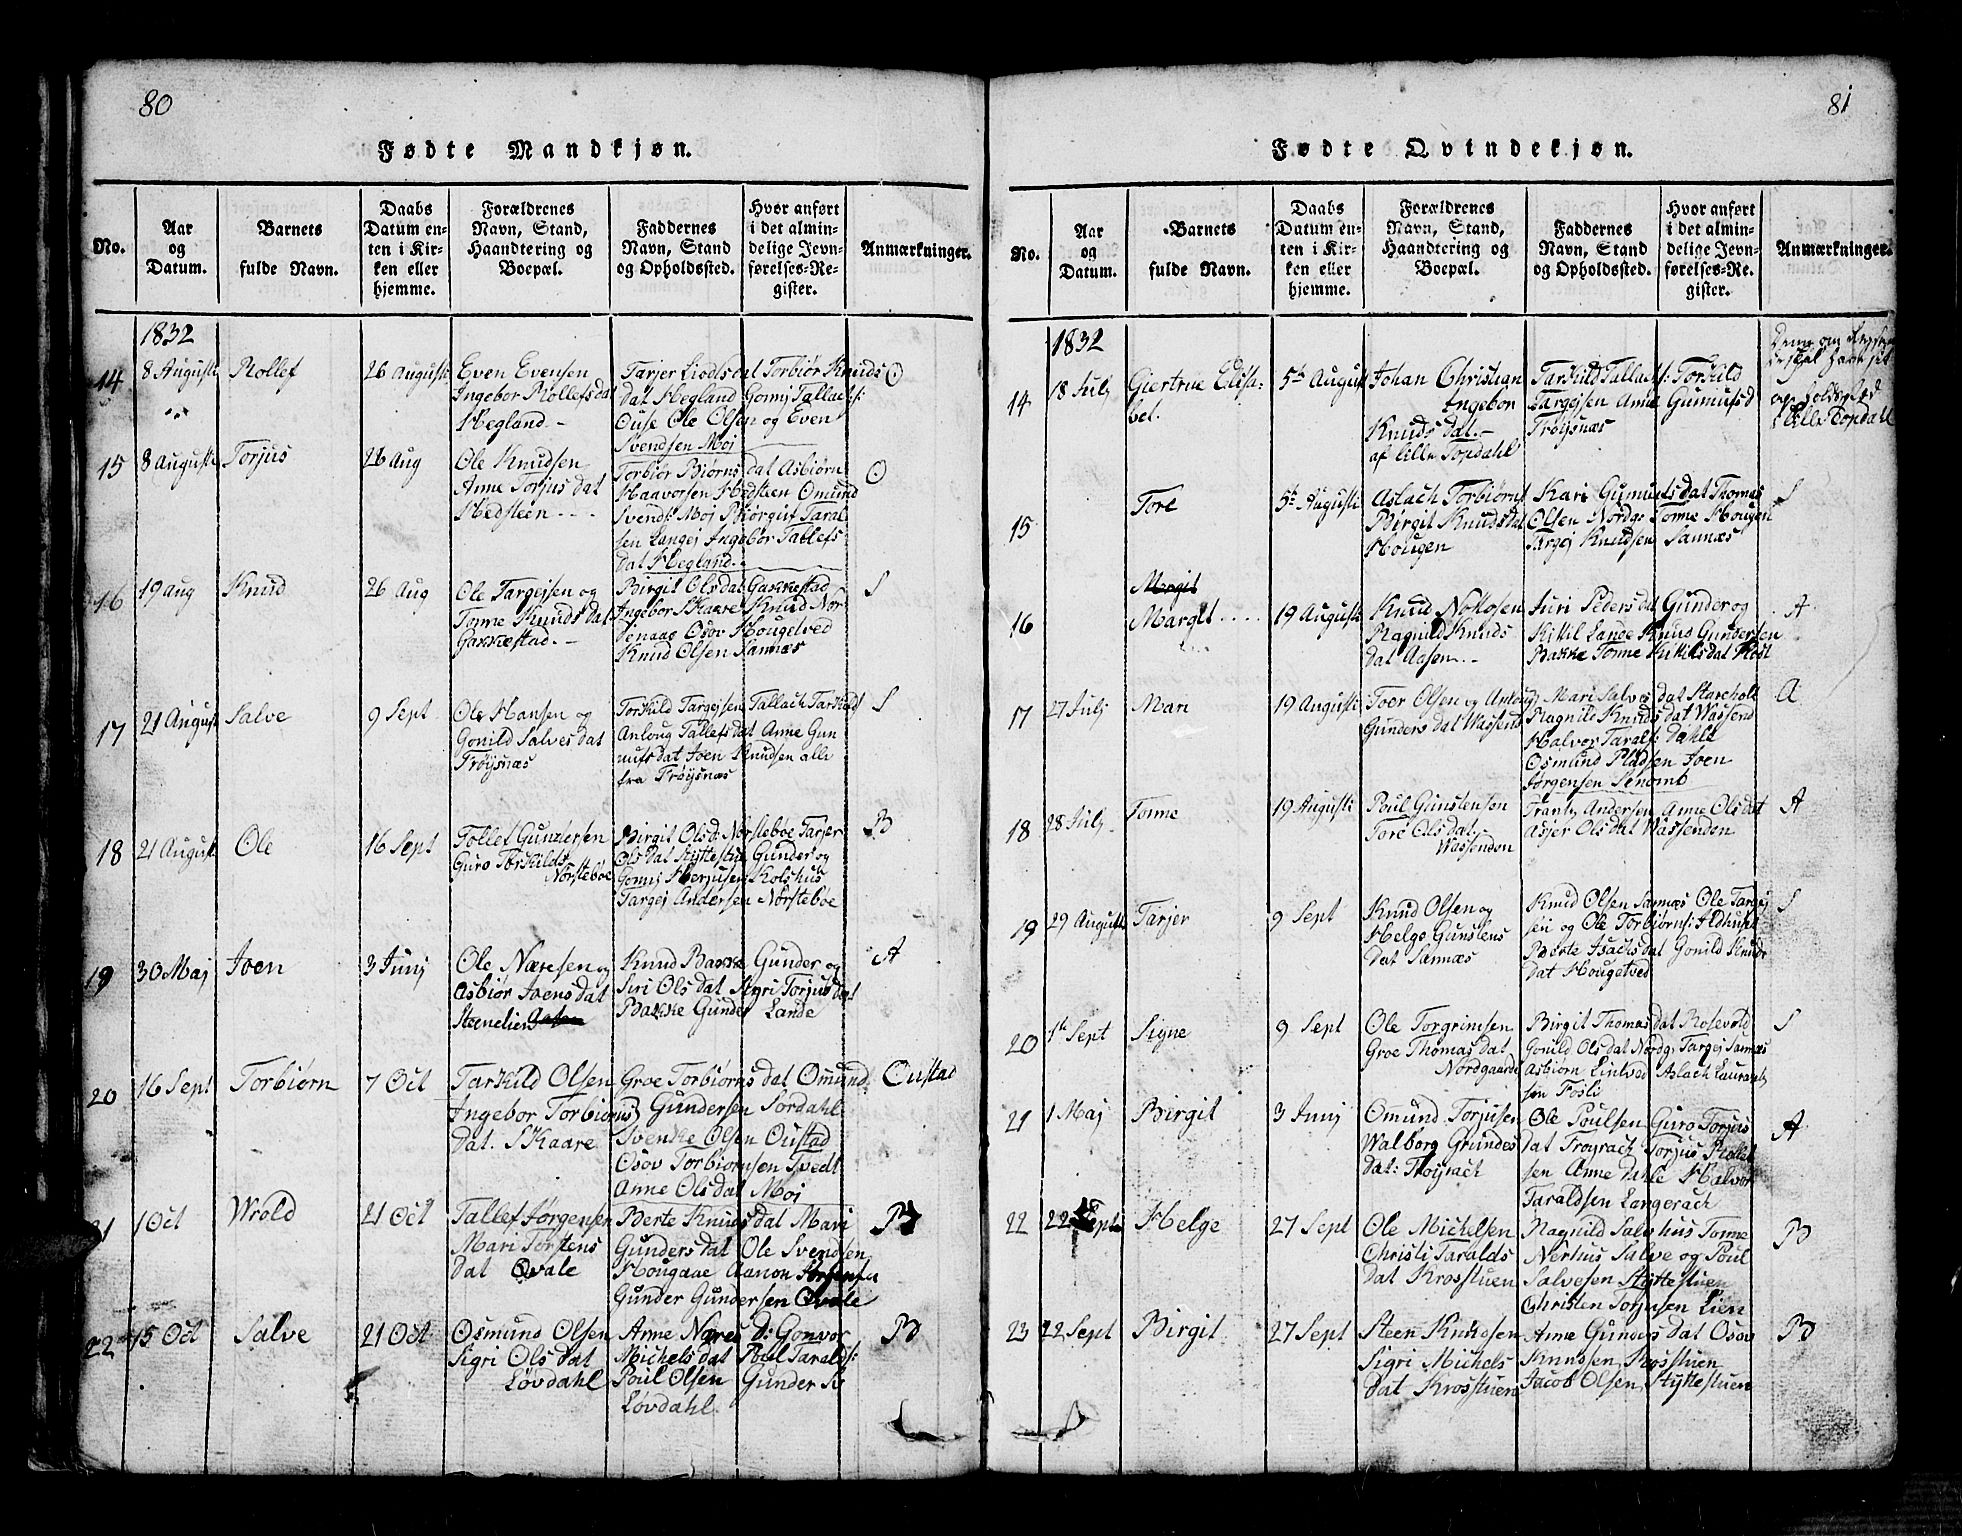 80
Fødte Mandkjøn.
No.
Aar
og
Datum.
Barnets
fulde Navn.
Daabs
Datum en-
ten i Kir-
ken eller
hjemme.
Forældrenes
Navn, Stand,
Haandtering og
Boepæl.
Faddernes
Navn, Stand
og Opholdssted.
Hvor anført
i det almin-
delige Jevn-
førelses-Re-
gister.
Anmærkninger.
1832
14
8 Augusti
Rollef
26 Augusti
Even Evensen
Ingebor Rollefsdat
Hegland -
Tarjer Liodsdat Torbiør Knuds
dat Hegland Gonnj Tallacs:
Ouse Ole Olsen og Even
Svendsen Moj
O
15
8 Augusti
Torjus
26 Aug
Ole Knudsen
Anne Torjus dat
Hedsteen - - -
Torbiør Biørns dat Asbiørn
Haavorsen Hedsteen Omund
Svends: Moj Biørgit Taral
sen Langej Ingebor Tallefs
dat Hegland.
O
16
19 aug
Knud
26 Aug
Ole Targejsen og
Tonne Knuds dat
Gakkestad. -
Birgit Olsdat Gakkestad
Ingebor Skaare Knud Nor
Osov Hougetved
Knud Olsen Sannæs
S
17
21 August
Salve
9 Sept
Ole Hansen og
Gonild Salves dat
Trøijsnæs
Torkild Targejsen Tallach Tarkild
Anloug Tallefsdat Anne Gun
nufsdat Joen Knudsen alle
fra Trøijsnæs
S
18
21 August
Ole
16 Sept
Tollef Gundersen
Guro Torkilds
Nørstebøe
Birgit Olsd: Nørstebøe Tarjer
Olsdat Støttestue Gunder og
Gonnj Herjusen Kolshus
Targej Andersen Nørstebøe
B
19
30 Maj
Joen
3 Junj
Ole Næresen og
Asbiør Joens dat
Steenelien
Knud Bakke Gunder og
Siri Ols dat Sigri Torjus dat
Bakke Gunder Lande
A
20
16 Sept
Torbiørn
7 Oct
Tarkild Olsen
Ingebor Torbiørns
dat. Skaare
Groe Torbiørns dat Omund
Gundersen Sordahl
Svenke Olsen Oustad
Osov Torbiornsen Tvedt
Anne Olsdat Moj
Oustad
21
1 Oct
Wrold
21 Oct
Tallef Jørgensen
Mari Torstens
dat Qvale
Berte Knuds dat Mari
Gundersdat Ole Svendsen
Hougaae Aanon
Gunder Gundersen Qvale
B
22
15 Oct
Salve
21 Oct
Osmund Olsen
Sigri Ols dat
Løvdahl
Anne Næres d: Gonvor
Michelsdat Poul Tarald s:
Poul Olsen Gunder
Løvdahl.
B
81
Fødte Qvindekjøn.
No.
Aar
og
Datum.
Barnets
fulde Navn.
Daabs
Datum en-
ten i Kir-
ken eller
hjemme.
Forældrenes
Navn, Stand,
Haandtering og
Boepæl.
Faddernes
Navn, Stand
og Opholdssted.
Hvor anført
i det almin-
delige Jevn-
førelses-Re-
gister.
Anmærkninger.
1832
14
18 Julj
Giertrue Elisa-
bet.
5te August
Johan Christian
Ingebor
Knuds dat. -
af lille Topdahl
Tarkild Tallachs: Torkild
Targejsen Anne Gunnufsd
Trøijsnæs
lille Topdahl
15
Tore
5te Augusti
Aslach Torbiørns
Birgit Knudsdat
Hougen
Kari Gunnufsdat Thomas
Olsen Nordg: Tonne Hougen
Targej Knudsen Sannæs
S
16
Margit
Margit . . . .
19 Augusti
Knud Nottosen
Ragnild Knuds
dat Aasen. -
Juri Peders dat Gunder og
Kittil Lande Knud Gundersen
Bakke Tonne Kittilsdat Røst
A
17
27 Julj
Mari
19 Augusti
Toer Olsen og Anloug
Gunders dat Wassend
Mari Salves dat Stareholt
Ragnile Knuds dat Wassend
Halvor Taralfs: Dahle
Osmund Pladsen Joen
Jørgensen Senomb
A
18
28 Julj
Tonne
19 Augusti
Poul Gunstenson
Tore Olsdat
Wassenden
Frants Andersen Anne Olsdat
Asjer Olsdat Wassenden
A
19
29 Augusti
Tarjer
9 Sept
Knud Olsen og
Helge Gunstens
dat Sannæs
Knud Olsen Sannæs Ole Targej
sen og Ole Torbiørns: Ildhuset
Berte Isachsdat Gonild Knuds
dat Hougetved
S
20
1te Sept
Signe
9 Sept
Ole Torgrimsen
Groe Thomas dat
Nordgaarde
Birgit Thomas dat Rosevold
Gonild Olsdat Nordg: Targej Sannæs
Asbiørn Lintved Aslach Laurant
sen Fosli
S
21
1 Maj
Birgit
3 Junj
Omund Torjusen
Walborg Grundes
dat: Trøyrach
Ole Poulsen Guro Torjus
dat Trøyrach Torjus Rollef
sen Anne Dahle Halvor
Taraldsen Langerach
A
22
22 Sept
Helge
27 Sept
Ole Michelsen
Christi Taralds
dat Krosstuen
Ragnild Salvhus Tonne
Nerhus Salve og Poul
Salvesen Støttestuen
Christen Torjusen Lien
B
23
22 Sept
Birgit
27 Sept
Steen Knudsen
Sigri Michels
dat Krosstuen
Anne Gunders dat Osov
Knudsen Krosstuen
Jacob Olsen Støttestuen
B